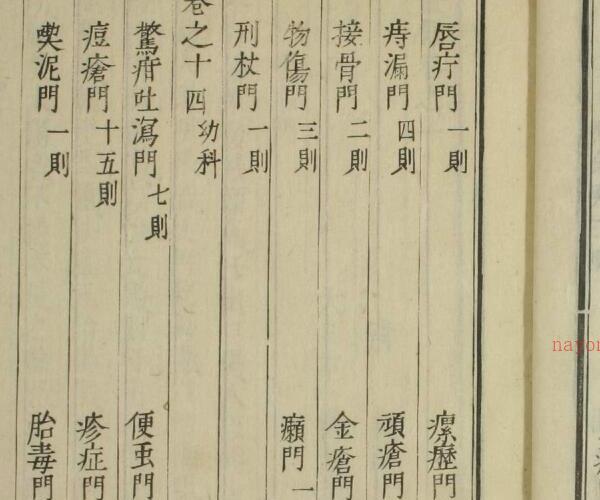 唇疔門 一則 瘰癧門
痔漏門 四則 頑瘡門
接骨門 二則 金瘡門
物傷門 三則 癩門 一
刑杖門 一則
卷之十四 幼科
驚疳吐瀉門 七則 便虫門
痘瘡門 十五則 疹症門
喫泥門 一則 胎毒門
nayon